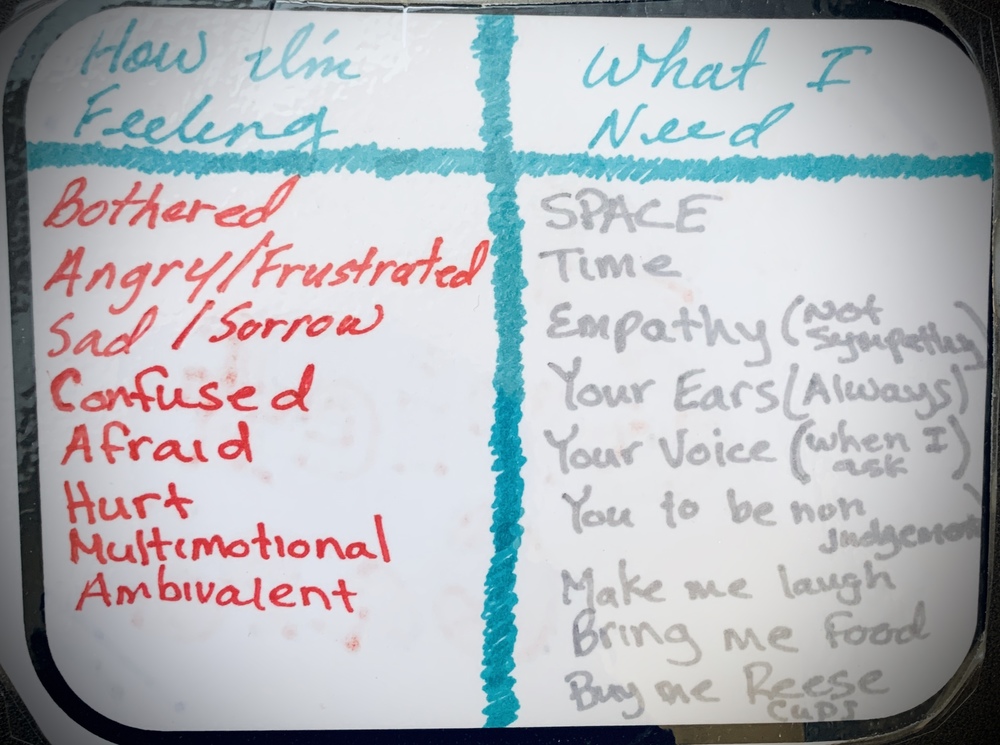 How I'm
Feeling
What I
Need
Bothered
Angry/Frustrated
Sad / Sorrow
Confused
Afraid
Hurt
Multimotional
Ambivalent
SPACE
Time
Empathy (Not
Sympathy)
Your Ears (Always)
Your Voice (when I
ask)
You to be non
Make me laugh
Bring me food
Buy me Reese
Cups